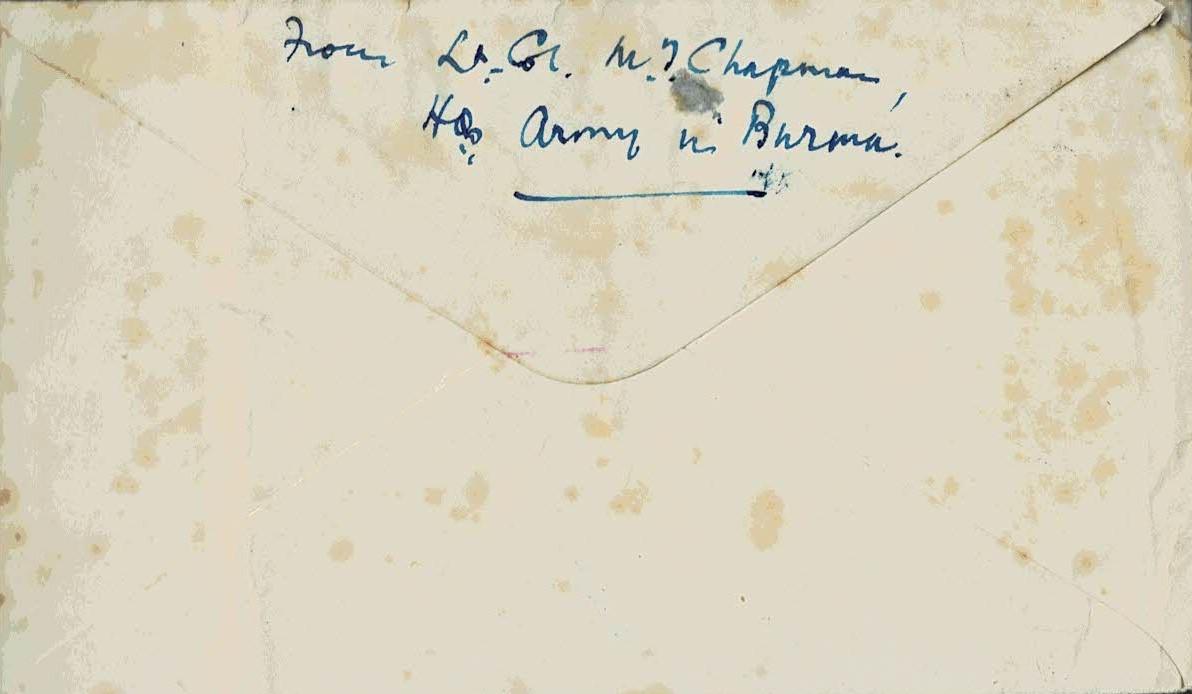 From Lt. Col. M. J Chapman,
HQ, Army in Burma.